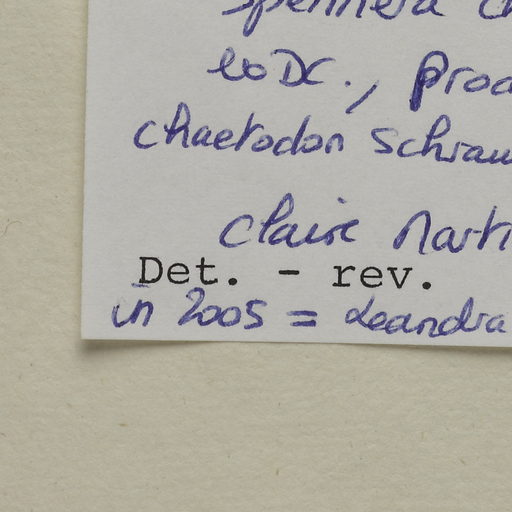 eo DC., proa
chaetodon schrau
Claire Marti
Det. - rev.
in 2005 = Leandra